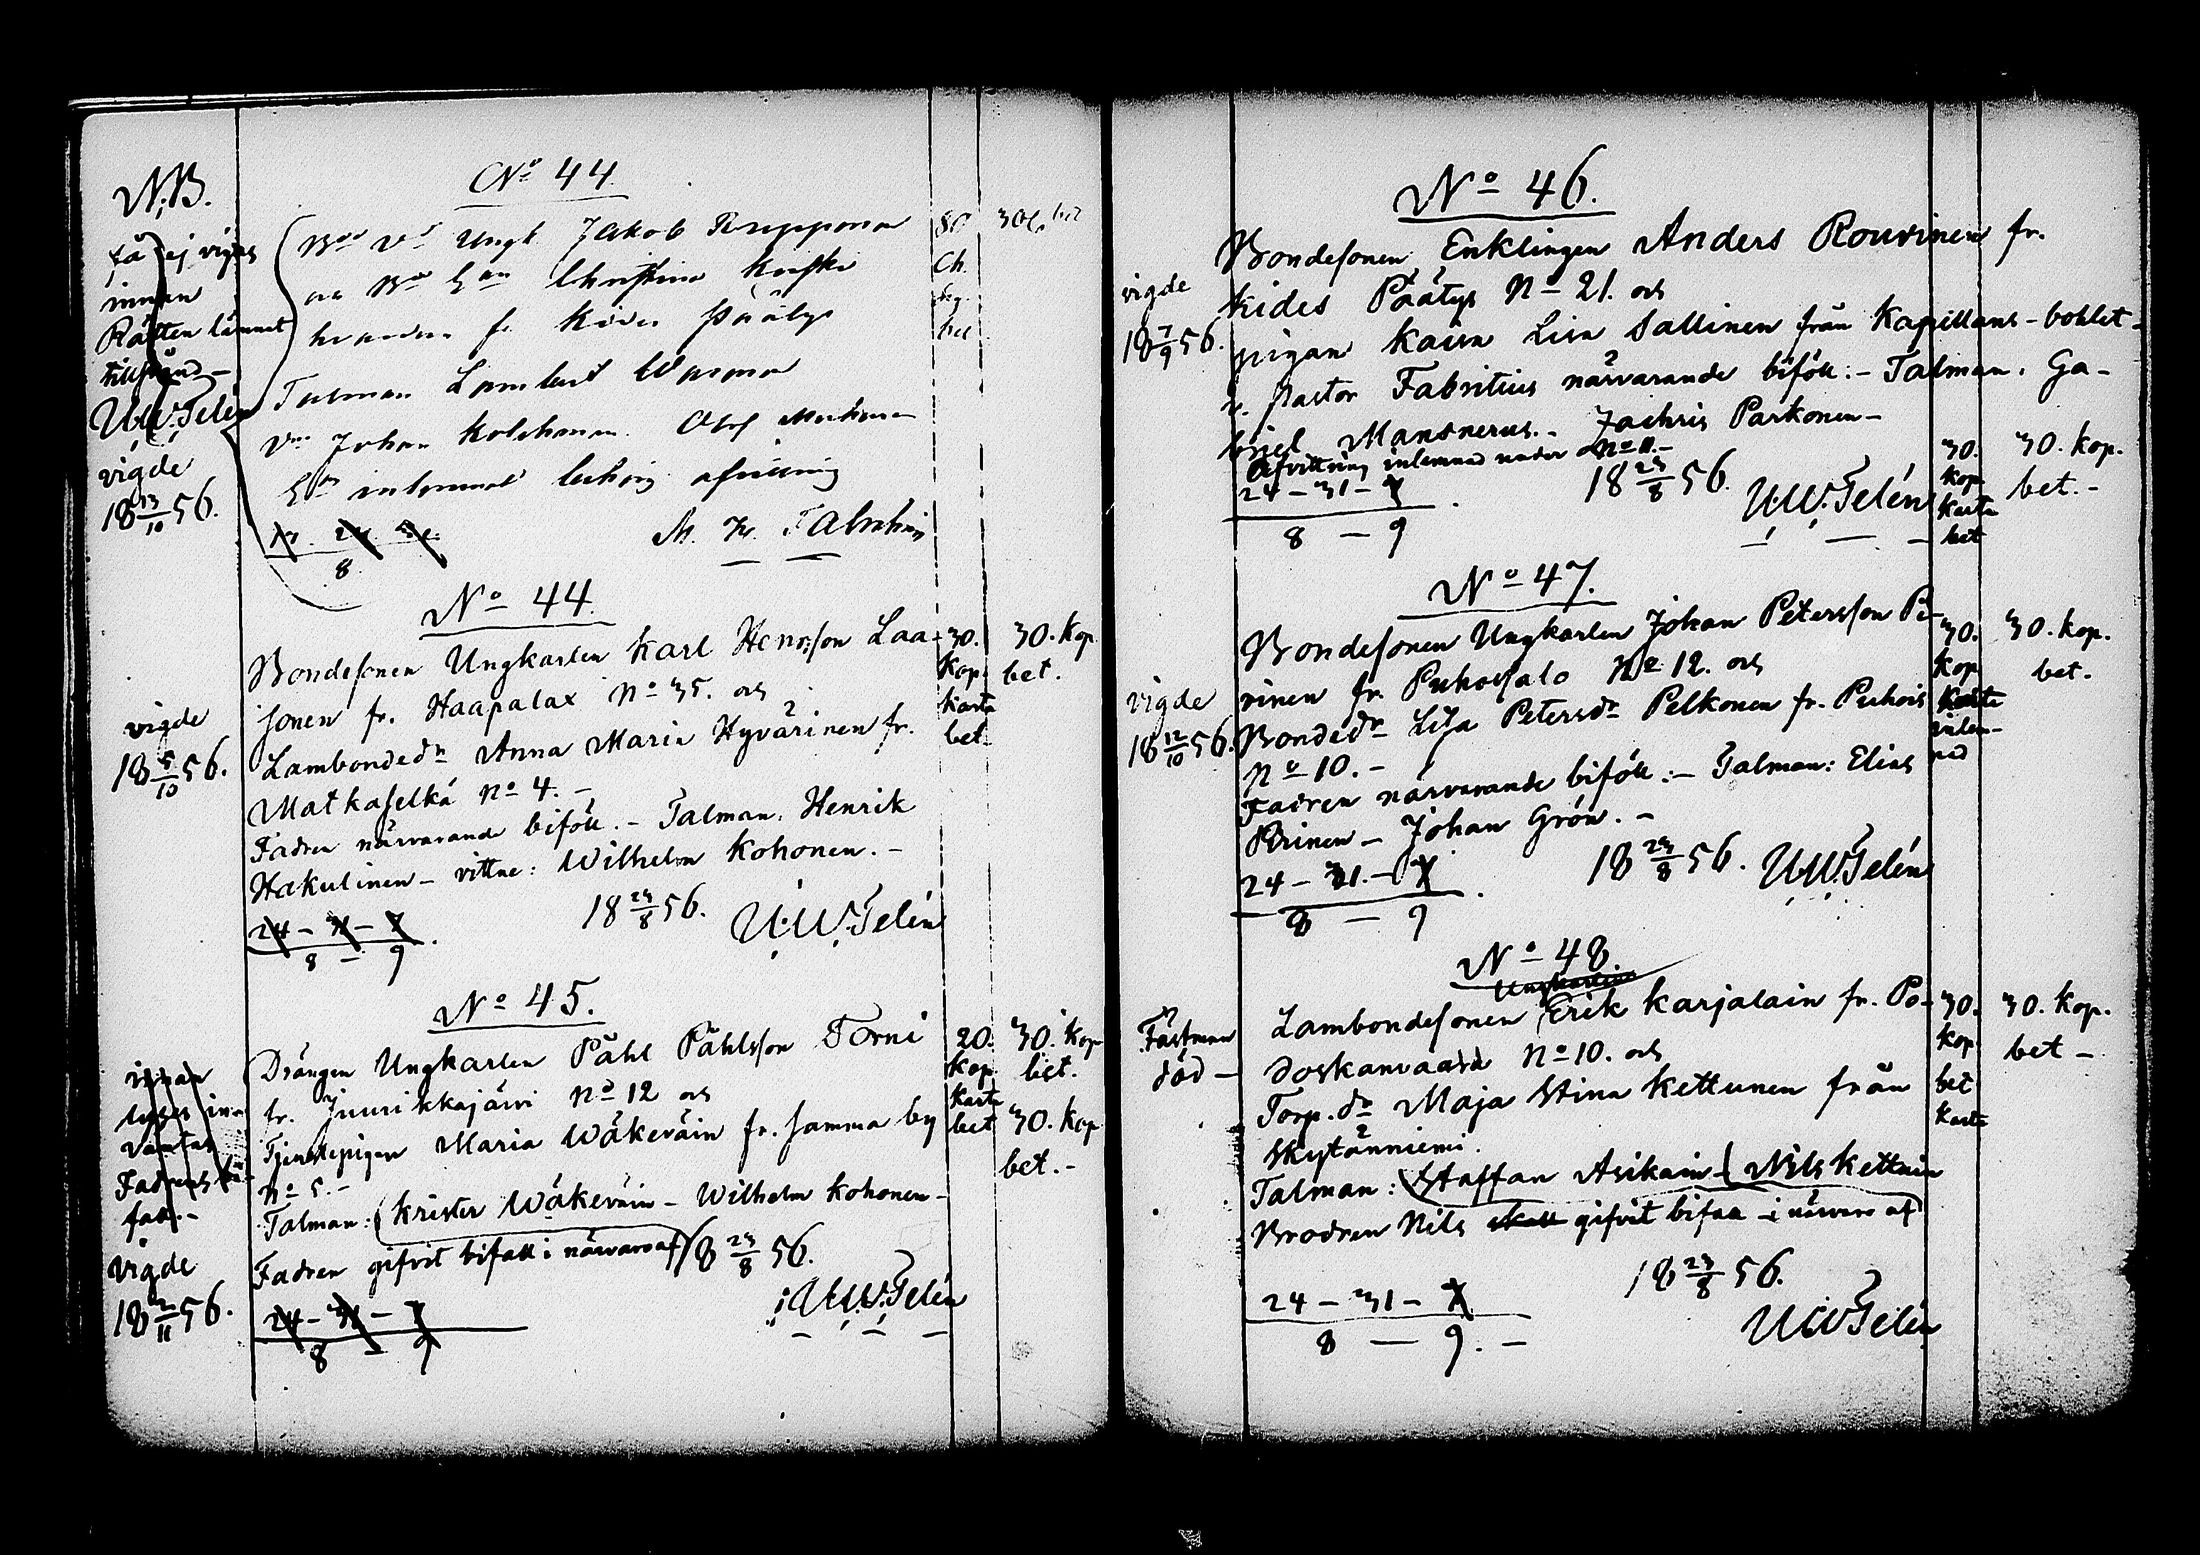 N.B.
få ej vigas
innan
Rätten lämnat
tillstånd -
U.W. Telén
vigde
18 13/10 56.
No 44
Ungk Jakob
Christina
hvardera fr Kides Päätys
Talman Lambert
Johan Kolehmanen Olof
afvittring
17. 24. 31.
8
No 44
Bondesonen Ungkarlen Karl Henrsson Laa-
sonen fr. Haapalax No 35. och
Lambondedr Anna Maria Hyvärinen fr.
Matkaselkä No 4. -
Fadren närvarande biföll. - Talman. Henrik
Hakulinen - vittne: Wilhelm Kohonen. -
18 23/8 56. U.W. Telén
24 - 31 - 7
8 - 9
vigde
18 5/10 56.
30. kop. karta bet.
30. kop. bet.
No 45.
Drängen Ungkarlen Påhl Påhlsson Torni
fr. Juurikkajärvi No 12 och
Tjenstepigan Maria Wäkeväin fr. samma by
No 5. -
Talman: (Krister Wäkeväin - Wilhelm Kohonen -
Fadren gifvit bifall i närvaro af) 18 23/8 56.
U.W. Telén
24 - 31 - 7
8 - 9
innan
Fadrens
vigde
18 2/11 56.
20. kop. karta bet
30. kop bet.
30. kop bet. -
No 46.
Bondesonen Enklingen Anders Rouvinen fr.
Kides Päätys No 21. och
pigan Kaisa Lisa Sallinen från Kapellans-bohlet -
v. Pastor Fabritius närvarande biföll: - Talman. Ga-
briel Mansnerus. - Zachris Parkonen -
Afvittring inlemnad under No 11. -
24 - 31 - 7
8 - 9
18 23/8 56. U.W. Telén
vigde
18 7/9 56.
30. kop karta bet
30. kop. bet. -
No 47.
Bondesonen Ungkarlen Johan Petersson Pi-
rinen fr. Puhossalo No 12. och
Bondedr Lisa Petersdr Pelkonen fr. Puhois
No 10. -
Fadren närvarande biföll: - Talman: Elias
Pirinen - Johan Grön. -
24 - 31. - 7
8 - 9
18 23/8 56. U.W. Telén
vigde
18 12/10 56.
30. kop karta inlem-
nad
30. kop. bet.
No 48.
Ungkarlen
Lambondesonen Erik Karjalain fr. Po-
doskanvaara No 10. och
Torp. dr Maja Stina Kettunen från
Skytänniemi.
Talman: (Staffan Asikain - (Nils Kettuin
Brodren Nils gifvit bifall i närvaro af)
18 23/8 56.
24 - 31 - 7
8 - 9. -
U.W. Telén
Fästman
död -
30. kop bet karta
30. kop. bet -